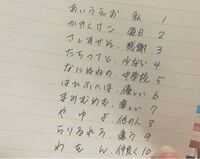 あいうえお、私 1
かきくけこ、毎日 2
さしすせそ、感謝 3
たちつてと、少ない 4
なにぬねの、中学校 5
はひふへほ、優しい 6
まみむめも、楽しい 7
や ゆ よ、他の人 8
らりるれろ、違う 9
わ を ん、仲良く 10